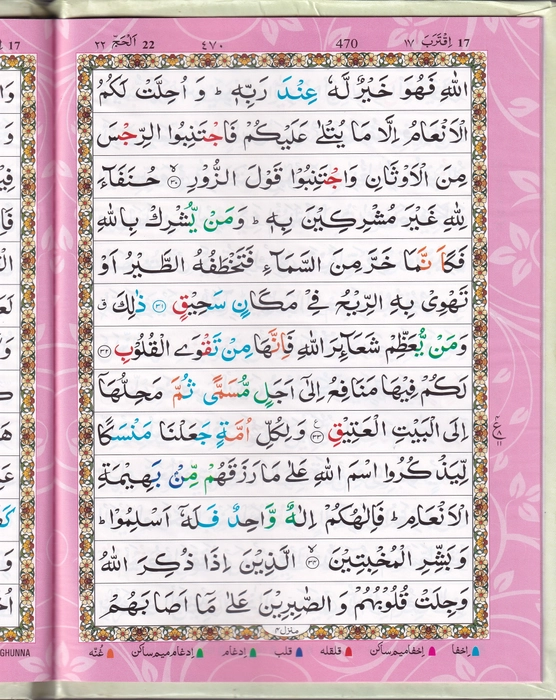 ١٧ اِقْتَرَبَ 17 470 ٤٧٠ 22 اَلْحَجّ ٢٢
اللّٰهِ فَهُوَ خَيْرٌ لَّهٗ عِنْدَ رَبِّهٖ ؕ وَ اُحِلَّتْ لَكُمُ
الْاَنْعَامُ اِلَّا مَا يُتْلٰى عَلَيْكُمْ فَاجْتَنِبُوا الرِّجْسَ
مِنَ الْاَوْثَانِ وَاجْتَنِبُوْا قَوْلَ الزُّوْرِ ۙ‏ ﴿۳۰﴾ حُنَفَآءَ
لِلّٰهِ غَيْرَ مُشْرِكِيْنَ بِهٖ ؕ وَمَنْ يُّشْرِكْ بِاللّٰهِ
فَكَاَنَّمَا خَرَّ مِنَ السَّمَآءِ فَتَخْطَفُهُ الطَّيْرُ اَوْ
تَهْوِىْ بِهِ الرِّيْحُ فِىْ مَكَانٍ سَحِيْقٍ ﴿۳۱﴾ ذٰلِكَ ۗ
وَمَنْ يُّعَظِّمْ شَعَآئِرَ اللّٰهِ فَاِنَّهَا مِنْ تَقْوَى الْقُلُوْبِ ﴿۳۲﴾
لَكُمْ فِيْهَا مَنَافِعُ اِلٰٓى اَجَلٍ مُّسَمًّى ثُمَّ مَحِلُّهَاۤ
اِلَى الْبَيْتِ الْعَتِيْقِ ﴿۳۳﴾ وَ لِكُلِّ اُمَّةٍ جَعَلْنَا مَنْسَكًا
لِّيَذْكُرُوا اسْمَ اللّٰهِ عَلٰى مَا رَزَقَهُمْ مِّنْۢ بَهِيْمَةِ
الْاَنْعَامِ ؕ فَاِلٰهُكُمْ اِلٰهٌ وَّاحِدٌ فَلَهٗۤ اَسْلِمُوْا ؕ
وَ بَشِّرِ الْمُخْبِتِيْنَ ۙ‏ ﴿۳۴﴾ الَّذِيْنَ اِذَا ذُكِرَ اللّٰهُ
وَجِلَتْ قُلُوْبُهُمْ وَ الصّٰبِرِيْنَ عَلٰى مَاۤ اَصَابَهُمْ
منزل ۴
اخفا اخفا میم ساکن قلقله قلب ادغام ادغام میم ساکن غُنّه
GHUNNA